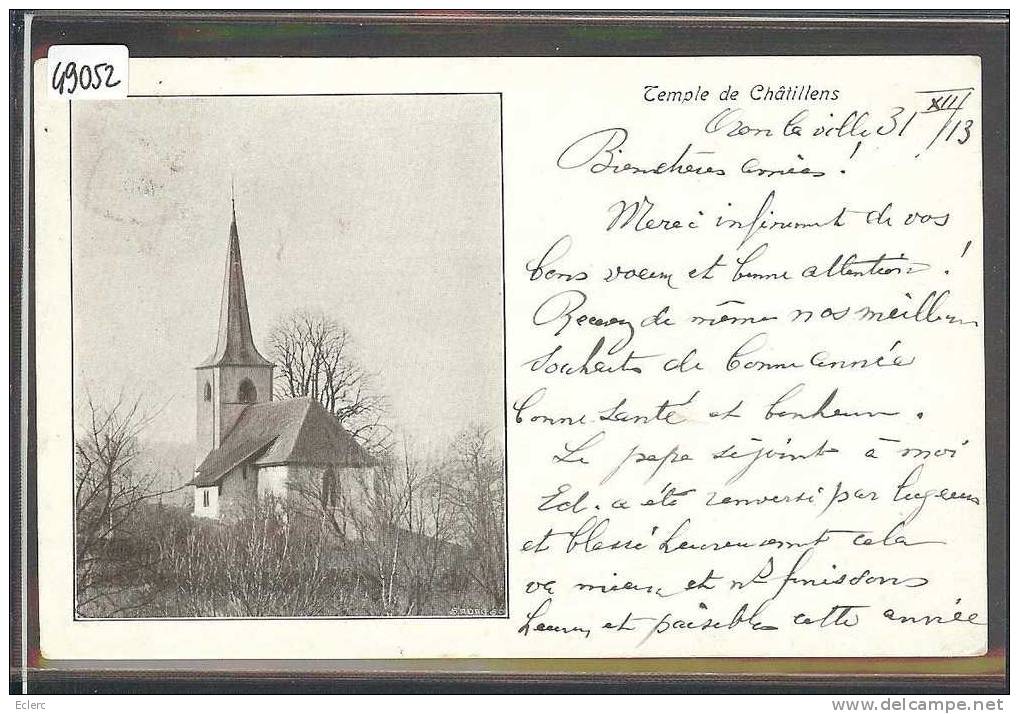 49052
Temple de Châtillens
Oron la ville 31 XII/13
Bien chères amies !
Merci infiniment de vos
bons voeux et bonne attention !
Recevez de même nos meilleurs
souhaits de bonne année
bonne santé et bonheur.
Le papa se joint à moi
Ed. a été renversé par
et blessé heureusement cela
va mieux et ns finissons
heureux et paisibles cette année
Eclerc
www.delcampe.net